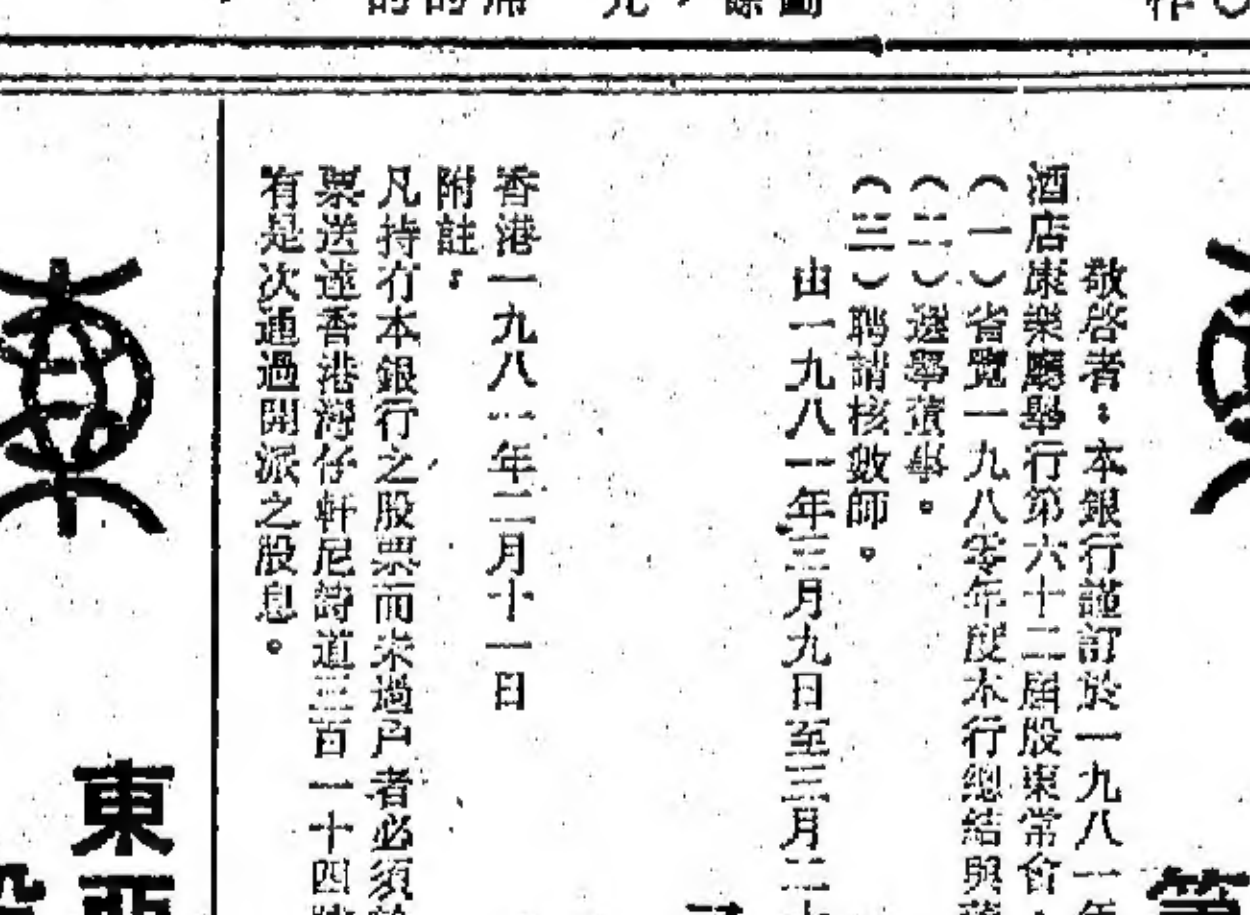 敬啓者：本銀行謹訂於一九八一年
酒店康樂廳舉行第六十二屆股東常會
（一）省覽一九八零年度本行總結與
（二）選舉董事。
（三）聘請核數師。
由一九八一年三月九日至三月二十
香港一九八一年二月十一日
附註：
凡持有本銀行之股票而未過戶者必須於
票送達香港灣仔軒尼詩道三百一十四號
有是次通過開派之股息。
東亞